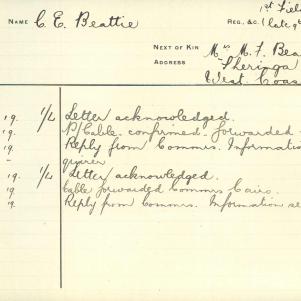 1st Fiel
NAME C. E. Beattie REG., &C. (late 9
NEXT OF KIN Mrs M. F. Bea
ADDRESS Sheringa
West Coas
19. 1/4 Letter acknowledged.
19. P/Cable confirmed. Forwarded
19. Reply from Commrs. Informatio
quirer
19. 1/4 Letter acknowledged.
19 Cable forwarded Commrs Cairo.
19. Reply from Commrs. Information se